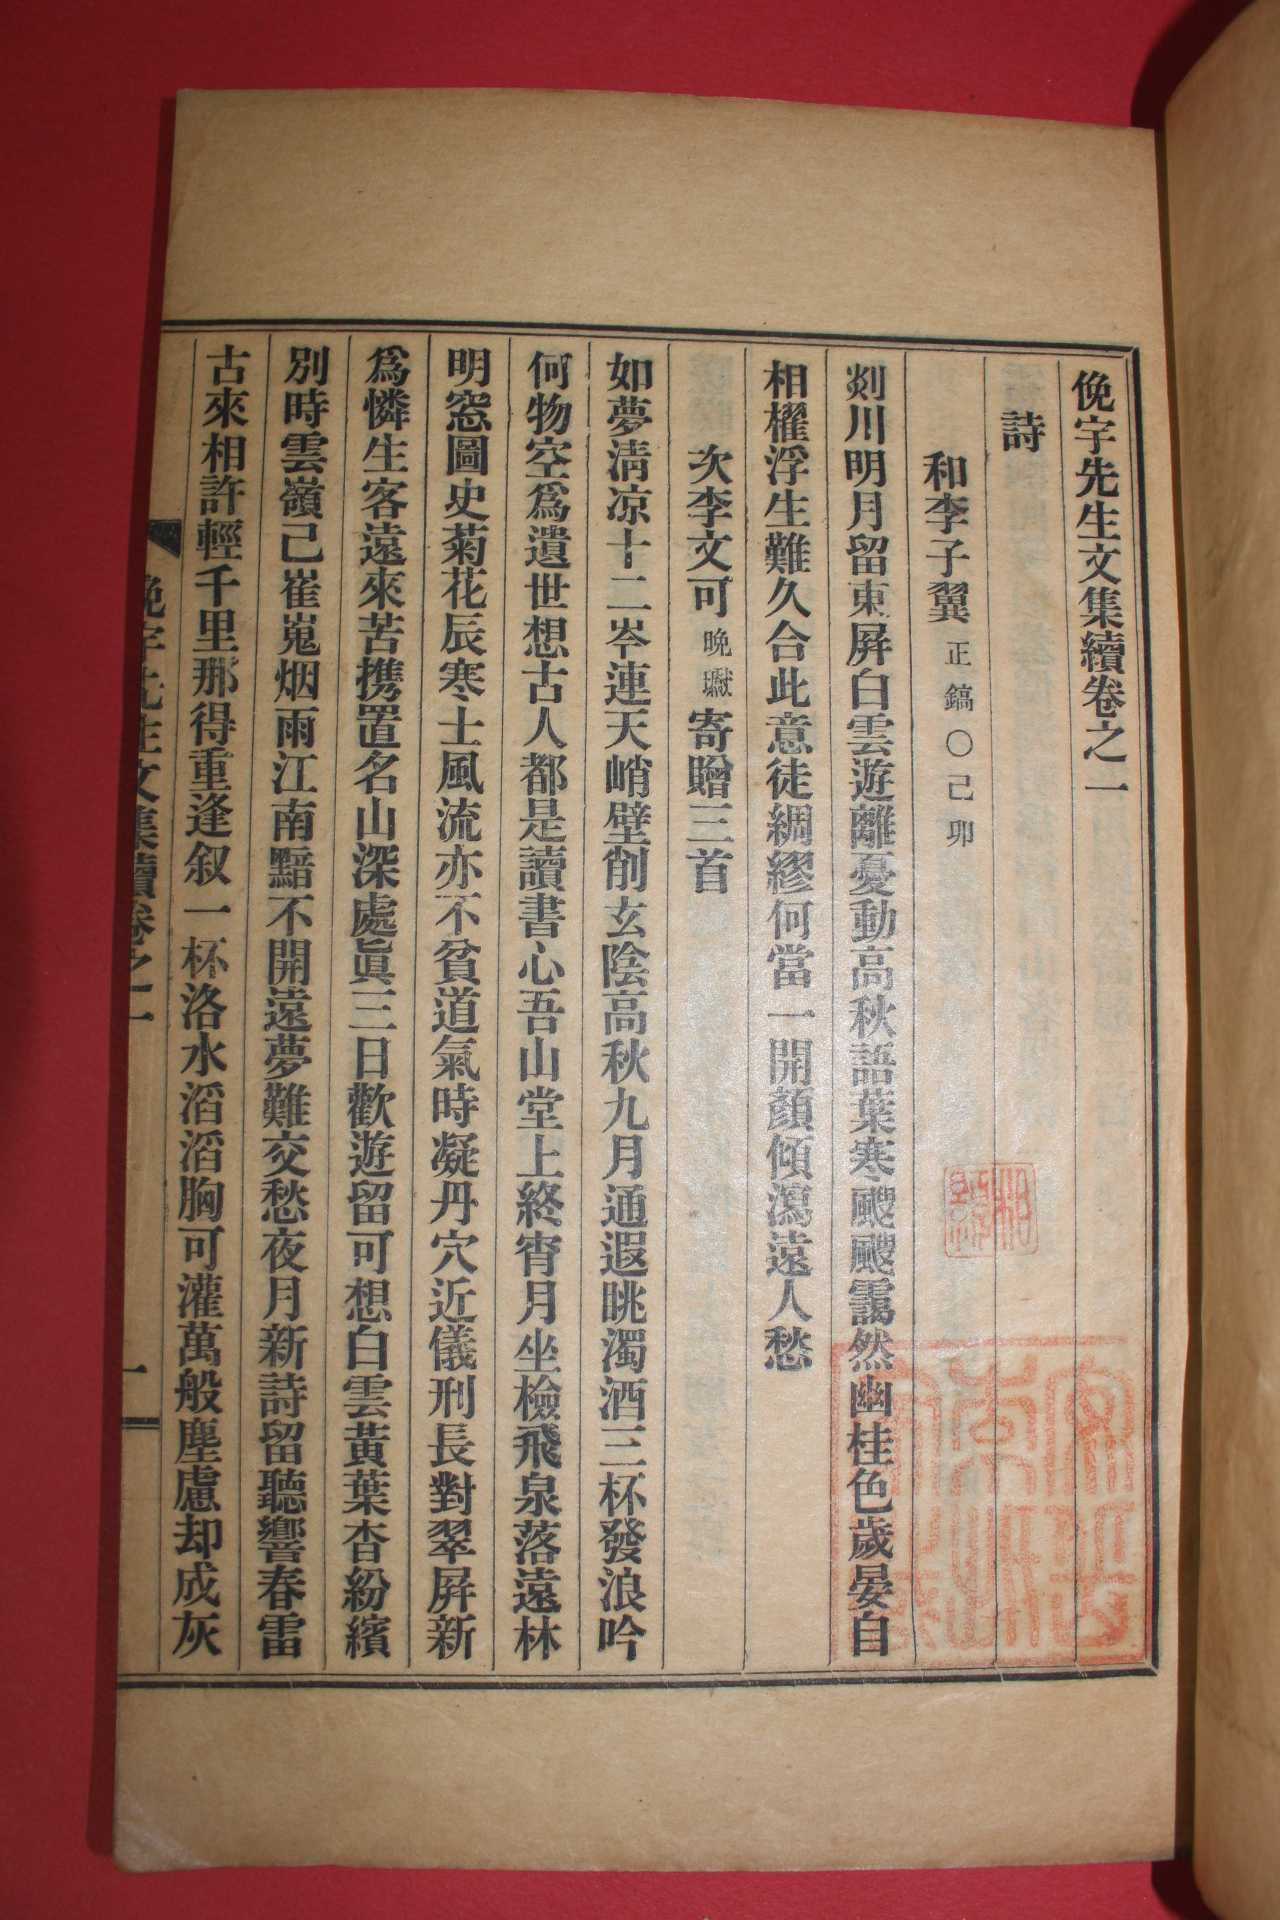 俛宇先生文集續卷之一
詩
和李子翼正鎬〇己卯
剡川明月留東屛白雲遊離憂動高秋語葉寒颼颼靄然幽桂色歲晏自
相櫂浮生難久合此意徒綢繆何當一開顏傾瀉遠人愁
次李文可晩㺤寄贈三首
如夢淸凉十二岑連天峭壁削玄陰高秋九月通遐眺濁酒三杯發浪吟
何物空爲遺世想古人都是讀書心吾山堂上終宵月坐檢飛泉落遠林
明窓圖史菊花辰寒士風流亦不貧道氣時凝丹穴近儀刑長對翠屛新
爲憐生客遠來苦携置名山深處眞三日歡遊留可想白雲黃葉杳紛繽
別時雲嶺己崔嵬烟雨江南黯不開遠夢難交愁夜月新詩留聽響春雷
古來相許輕千里那得重逢叙一杯洛水滔滔胸可灌萬般塵慮却成灰
俛宇先生文集續卷之一
一